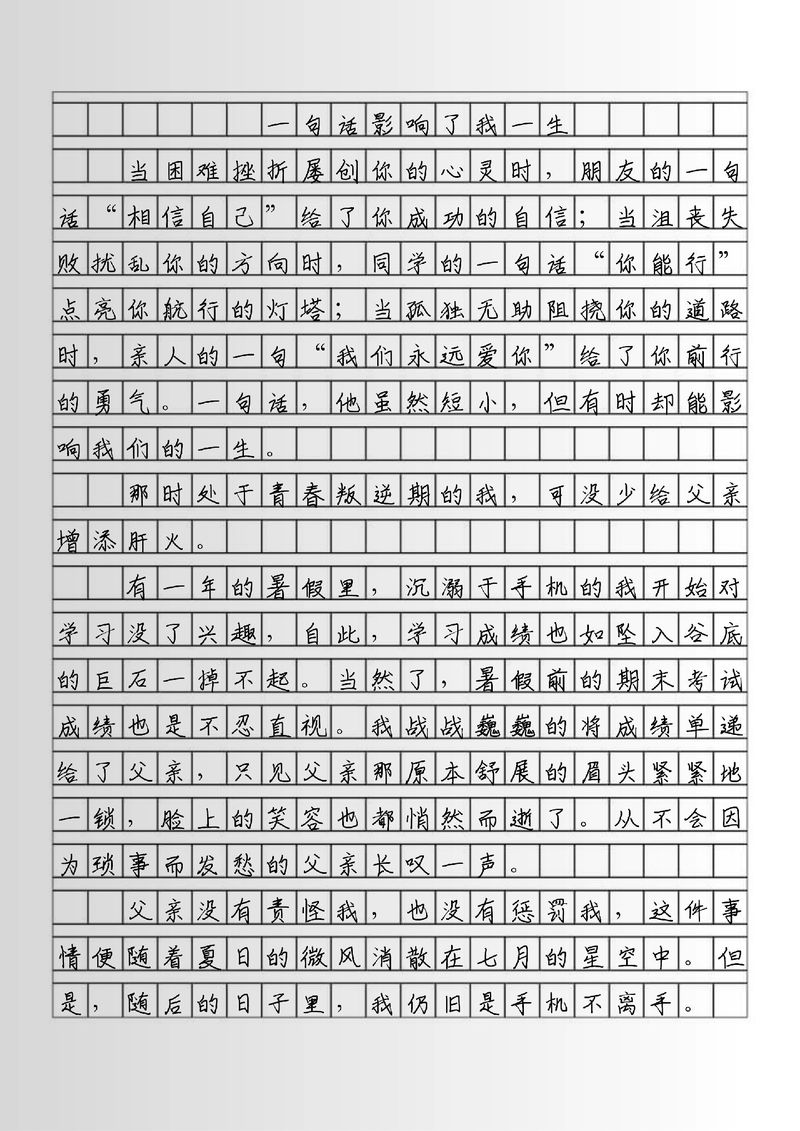 一句话影响了我一生
当困难挫折屡创你的心灵时，朋友的一句
话“相信自己”给了你成功的自信；当沮丧失
败扰乱你的方向时，同学的一句话“你能行”
点亮你航行的灯塔；当孤独无助阻挠你的道路
时，亲人的一句“我们永远爱你”给了你前行
的勇气。一句话，他虽然短小，但有时却能影
响我们的一生。
那时处于青春叛逆期的我，可没少给父亲
增添肝火。
有一年的暑假里，沉溺于手机的我开始对
学习没了兴趣，自此，学习成绩也如坠入谷底
的巨石一掉不起。当然了，暑假前的期末考试
成绩也是不忍直视。我战战巍巍的将成绩单递
给了父亲，只见父亲那原本舒展的眉头紧紧地
一锁，脸上的笑容也都悄然而逝了。从不会因
为琐事而发愁的父亲长叹一声。
父亲没有责怪我，也没有惩罚我，这件事
情便随着夏日的微风消散在七月的星空中。但
是，随后的日子里，我仍旧是手机不离手。